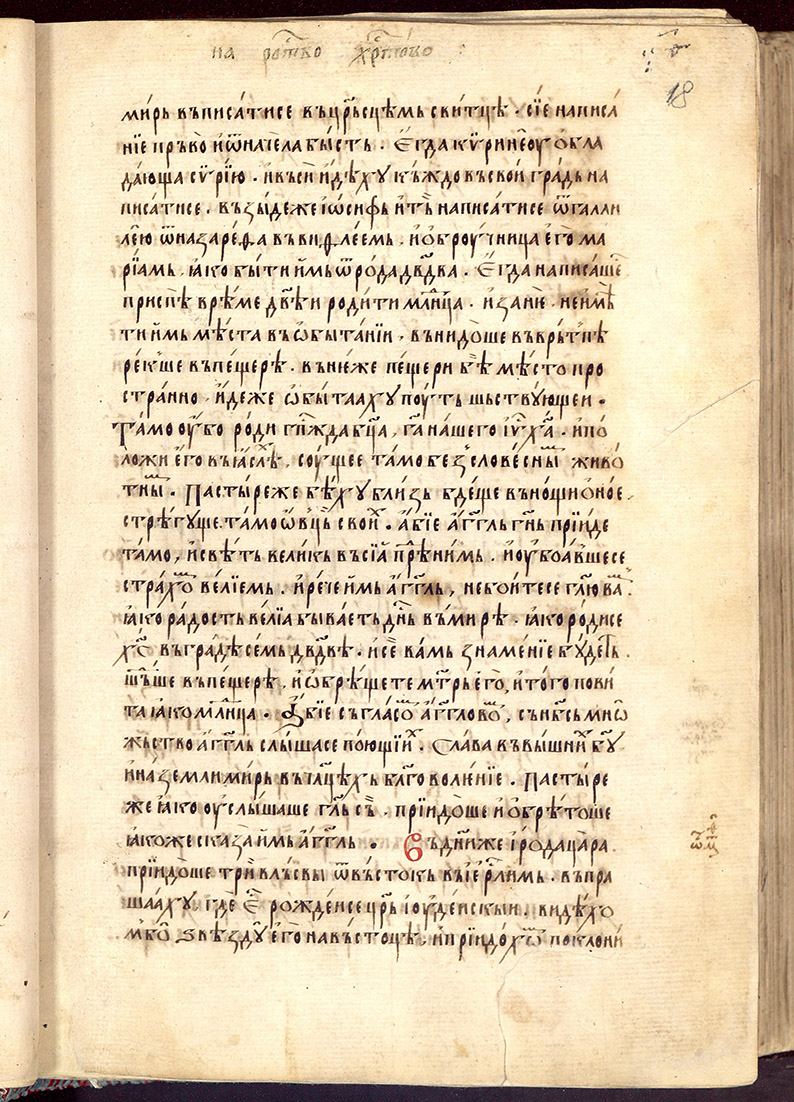 на рѡⷤтво хрⷭ҇тово
18
ми́рь въписа́тисе въцрⷭ҇ьсцѣ́мь сви́тцѣ · сїѐ написа́
нїе пръ́во и҆ ѿначе́ла бы́сть · Е҆гда кѷринеоу̀ ѻ҆бла
да́юща сѷрі́ею · и҆въсѝ и҆дѣ́ху къ́ждо въсво́и гра́дь на
писа́тисе · въ́зы́де же і҆ѡ́сифь и҆ тъ̀ написа́тисе ѿ галли
ле́ю ѿ назаре́ѳа въ виѳлее́мь · и҆ ѻ҆броу́чница е҆го̀ ма
рїа́мь · ꙗ҆́ко бы́ти и҆́мь ѿ ро́да дв҃два · Е҆гда написа́ше
приспѣ̀ врѣ́ме дв҃ѣи роди́ти млⷣнца · и҆ занѐ · не и҆мѣ̀
ти и҆́мь мѣ́ста въ ѡ҆быта́нїи · въ нидо́ше въ врьтъпѣ
ре́кⸯше въ пещерѣ · въ ню́еже пещери бѣ̀ мѣ́сто про
стра́нно · и҆де́же ѡ҆быта́аху поу́ть шьству́ющеи ·
Та́мо оу҆́бо родѝ гжⷭ҇да бц҃а, га҃ на́шего і҆ѵ҃ ха҃ · и҆ по
ложи е҆го въ ꙗ҆́слѣⷯ, соу́щее та́мо бе́з слове́снїмⸯ живо́
тнымⸯ · Пасты́реже бѣ́ху бли́зь бде́ще въ но́щи ѻ҆но́е ·
стрѣгуще та́мо ѻ҆в́цѣ свои́ⷯ · А҆́бїе а҆́гг҃ль гн҃ь прїи́де
та́мо, и҆ свѣ́ть вели́кь въсїа̀ прⷣѣ ни́мь · и҆ оу҆боа́вшесе
стра́хѡмⸯ ве́лїемь · и҆ ре́че и҆́мь а҆́гг҃ль, не бо́итесе гл҃ю ва́мⸯ ·
ꙗ҆́ко ра́дость ве́лїа быва́еть дн҃ь въ ми́рѣ · ꙗ҆́ко роди́се
хⷭ҇ въ гра́дѣ се́мь дв҃двѣ · и҆ сѐ ва́мь зна́менїе бу́деть ·
шь́дше въ пещерѣ, и҆ ѡ҆брѣ́щете мт҃рь е҆го̀, и҆ того̀ пови́
та ꙗ҆́ко млⷣнца · А҆́бїе съ гла́сомⸯ а҆́гг҃ловомⸯ, съ нбⷭ҇ь мнѡ́
жьство а҆́гг҃ль слы́шасе пою́щїиⷯ · Сла́ва въ вы́шниⷯ бу҃
и҆ на земли́ ми́рь въ чл҃цѣхь блг҃оволе́нїе · Пасты́ре
же ꙗ҆́ко оу҆слы́шаше гл҃ь съ̀ · прїидо́ше и҆ ѻ҆брѣто́ше
ꙗ҆́коже сказа и҆́мь а҆́гг҃ль · Въ дн҃и же і҆́рода цара̀
прїидо́ше трїѐ влъ́сви ѿ въсто́кь въ і҆ерⷭ҇ли́мь · въ пра
ша́аху, где е҆́ⷭ рожде́нсе цр҃ь і҆оуде́искыи · ви́дѣхо
мⸯбо ѕвѣзду̀ е҆го на въсто́цѣ, и҆ прїидо́хѡмⸯ поклони́